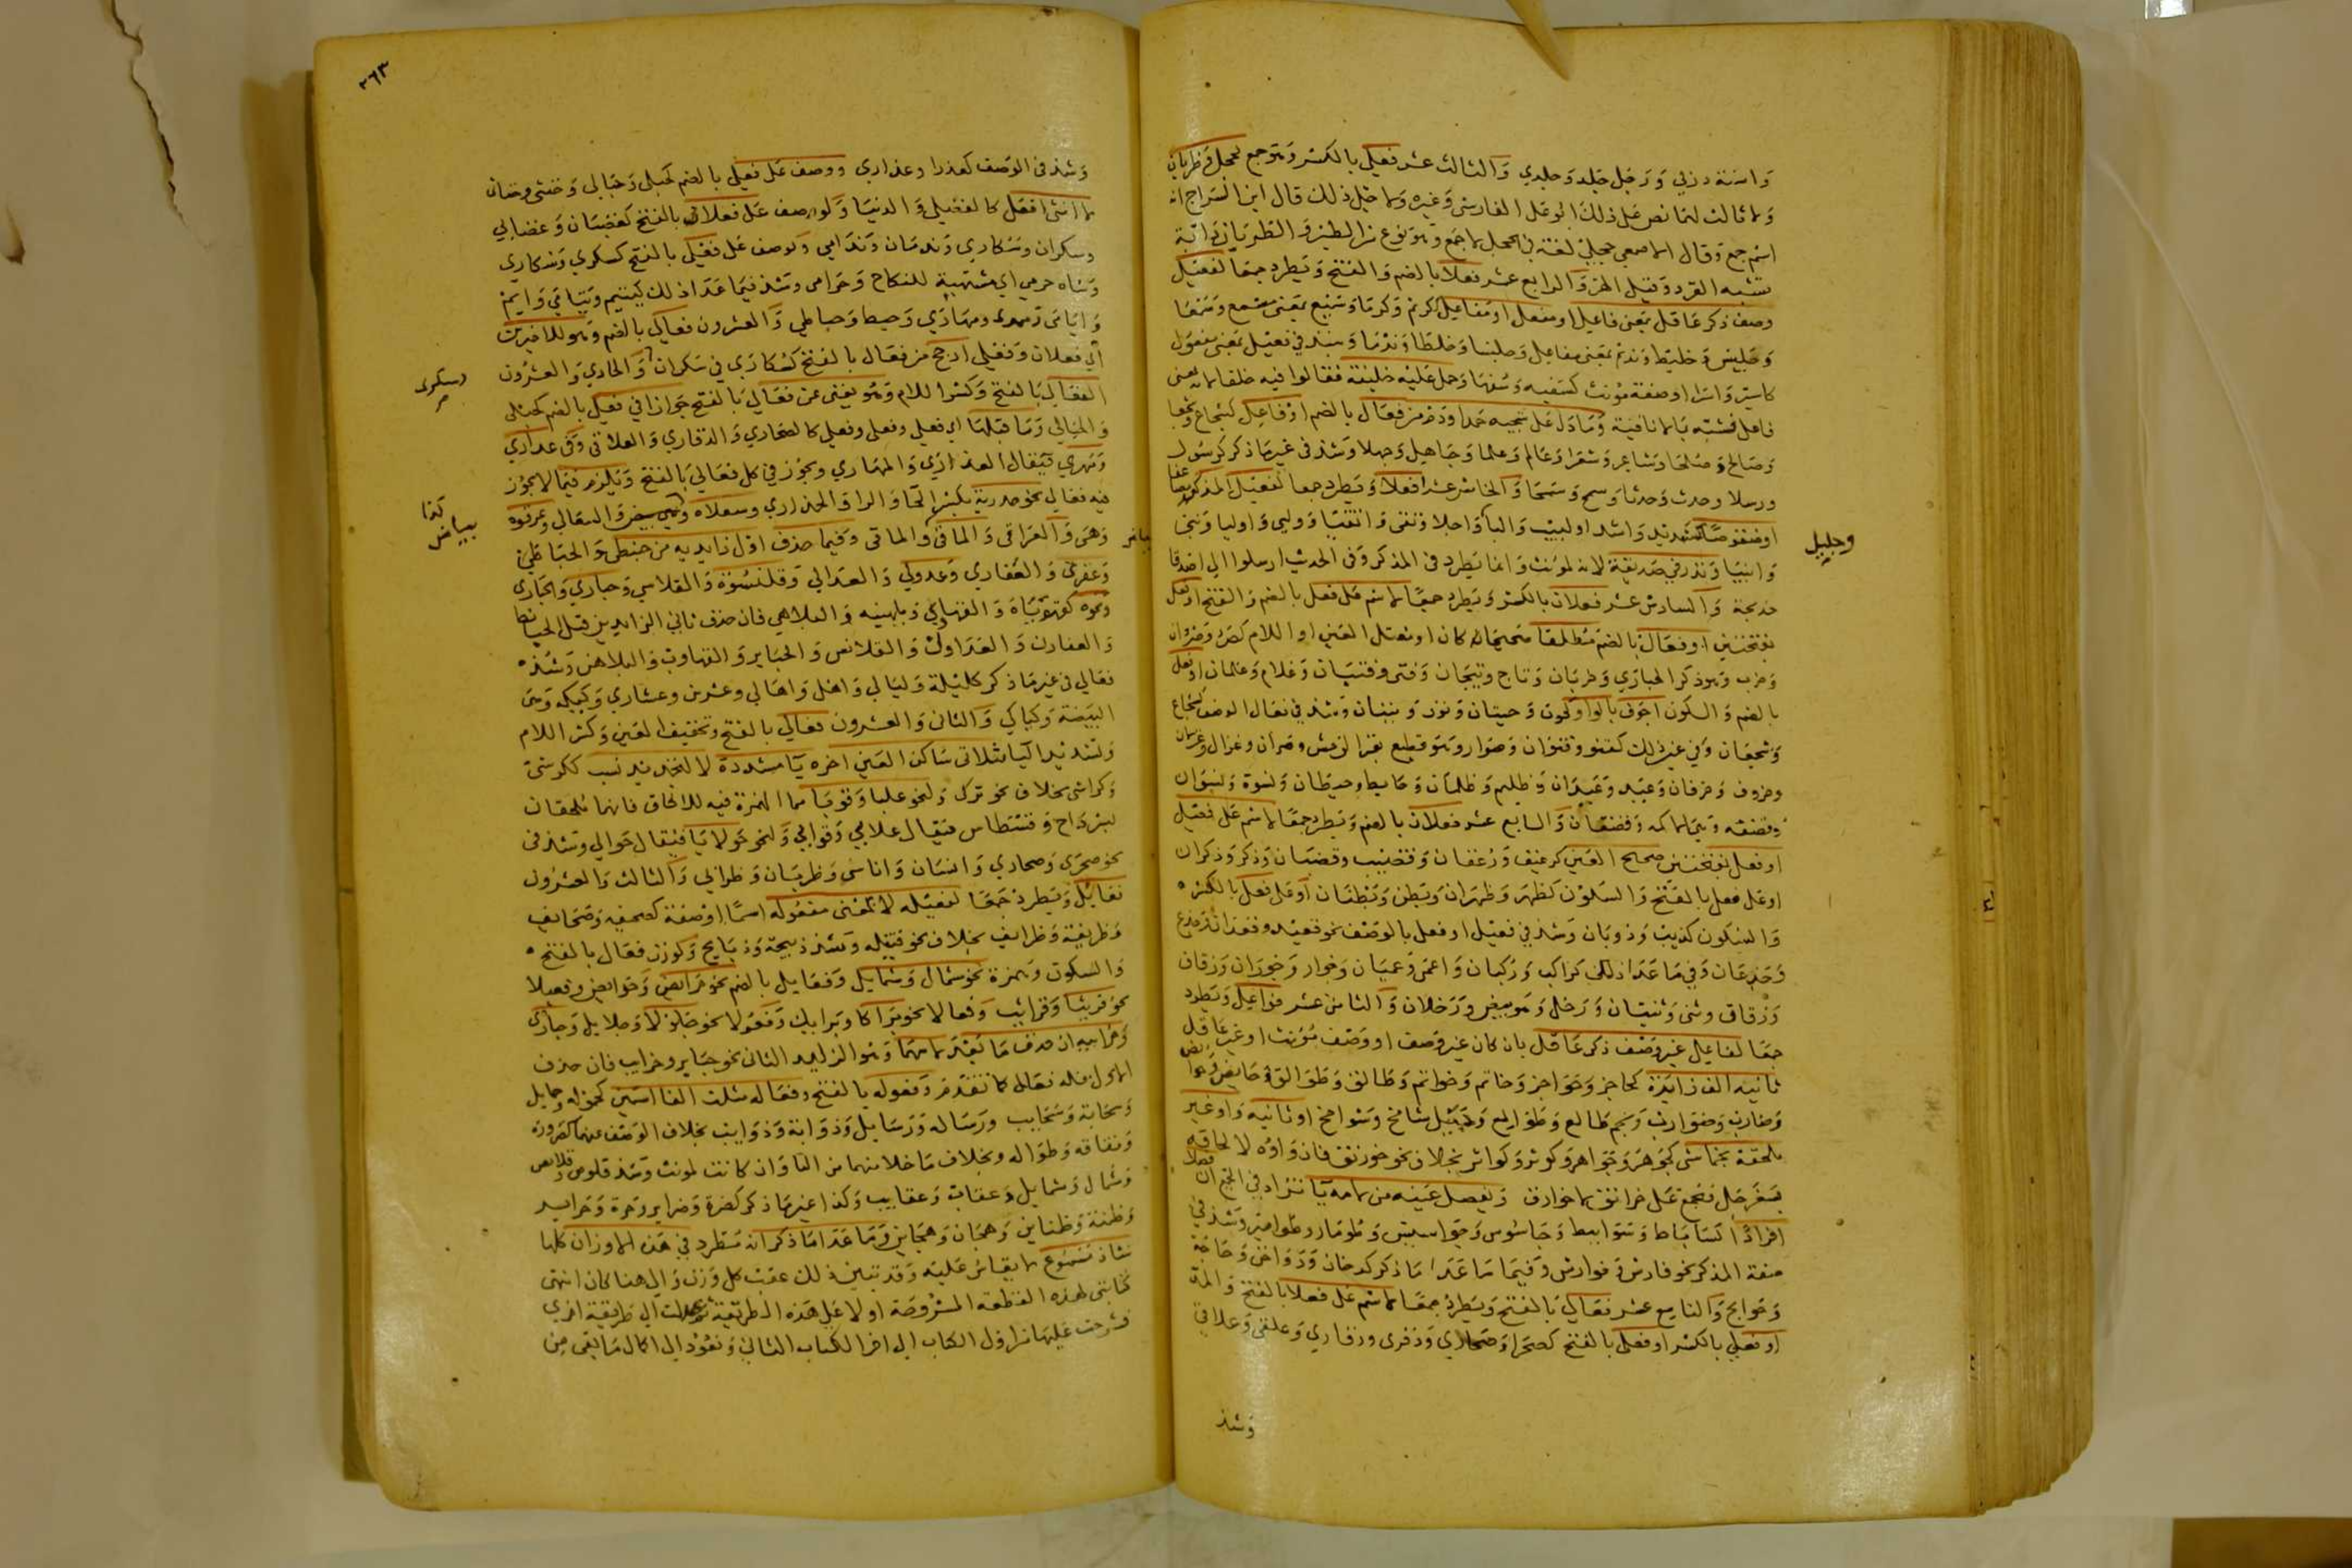 واسته دزلي وَرَجل جَلد وَجلدي وَالثالث عشر فعلى بالكسر وَهوَ جمع لحجل وَظربان
وَلا ثالث لهمَا نص عَلى ذلك ابو عَلى الفارسي وَغيره وَلما قيل ذلك قال ابن السرَاج انه
اسم جمع وَقال الاصمعي حجلى لغة في الحجل لا جمع وَهوَ نوع من الطير وَالظربَان دَابة
تشبه القرد وَقيل الهر وَالرابع عشر فعلا بالضم وَالفتح وَيَطرد جمعَا لفعيل
وصف ذكر عَاقل بمعنى فاعل او مفعل او مفاعل ككريم وَكرمَا وَسميع بمعنى مسمع وَسمعَا
وَجَليس وَخليط وَنديم بمعنى مفاعل وَجلسا وَخلطَا وَندمَا وَشذ في فعيل بمعنى مفعول
كاسير وَاسرَا او صفة مؤنث كسَفيه وَسُفهَا وَحمل عَليه خليفة فقالوا فيه خلفا لانه بمعنى
فاعل فشبه بَما لا تا فيه وَمَا دَل عَلى سجيه حمد او ذم من فعَال بالضم او فاعل كشجاع وَشجعا
وَصَالح وَصلحَا وَشاعر وَشعرَا وَعَالم وَعلما وَجَاهل وَجهلا وَشذ في غير مَا ذكر كرَسُول
ورسلا وحدث وَحدثا وسمح وَسَمحَا وَالخامس عشر افعلا وَيَطرد جمعا لفعيل المذكر مضاعفا
او منقوصَا كشديد وَاشدا ولبيب وَالبا وَاجلا وَنقى وَاتقيَا وَولي وَاوليا وَنبى
وجليل
وَانبيَا وَنذر في صَديقة لانه لمؤنث وَانما يَطرد في المذكر وَفي الحديث ارسلوا الى اصدقا
خديجة وَالسادس عشر فعلان بالكسر وَيَطرد جمعَا لاسم عَلى فعل بالضم وَالفتح او فعل
بفتحتين او فعَال بالضم مُطلقا صحيحَا كان او معتل العين او اللام كصُرَد وَصردَان
وَخرب وَهوَ ذكر الحبارَي وَخربَان وَتاج وَتيجَان وَفتى وَفتيَان وَغلام وَغلمان او فعل
بالضم وَالسكون اجوَف بالواو كحوت وَحيتان وَنون وَنينان وَشذ في فعَال الوصف كشجاع
وَشجعَان وَفي غير ذلك كقنو وَقنوَان وَصوَار وَهوَ قطيع بقر الوحش وَصيران وَغزال وَغزلان
وخروف وَخرفان وَعَبد وَعَبدَان وَظليم وَظلمان وَحَايط وحيطَان وَنسوة وَنسوَان
وَالسابع عشر فعلان بالضم وَيَطرد جمعَا لاسم عَلى فعيل
او فعل بفتحتين صحيح العين كرغيف وَرُغفان وَقضيب وقضبَان وَذكر وَذكران
او عَلى فعل بالفتح وَالسكون كظهر وَظهرَان وَبَطن وَبُطنَان او عَلى فعل بالكسر
وَالسكون كذيب وَذوبَان وَشذ في فعيل او فعل بالوَصف نحو قعيد وقعدَان وَجذع
وَجذعَان وَفي مَا عَدَا ذلك كرَاكب وَرُكبان وَاعمى وَعميَان وَحوَار وَحورَان وَزقاق
وَزقاق وَثنى وَثنيَان وَرَخل وَرخلان وَالثامن عشر فوَاعل وَيَطرد
جمعَا لفاعل غير وَصف ذكر عَاقل بان كان غير وَصف او وَصف مُؤنث او غير عَاقل
ثانيه الف زايدة كحاجز وَحَوَاجز وَخاتم وَخواتم وَطَالق وَطَوَالق وَحَايض
وَضارب وَضوَارب وَنجم طَالع وَطَوَالع وَجَبَل شامخ وَشوَامخ او ثانيه وَاو غير
ملحقة بخماسى كجَوهر وَجَوَاهر وَكوثر وَكواثر بخلاف نحو خورنق فان وَاوه لالحاقه
بسَفرجَل فتجمع عَلى خرانق لا خوارق وَيفصل عَينه من لامه يَا تزاد في الجمع ان
افرادا كسَابَاط وَسَوَابيط وَجَاسُوس وَجَوَاسيس وَطومَار وطوَامير وَشذ في
صفة المذكر نحو فارس وَفوارس وَفيمَا مَا عَدَا مَا ذكر كدخان وَدَوَاخن وَحَاجَة
وَحَوايج وَالتاسع عشر فعَالى بَالفتح وَيَطرد جمعَا لاسم عَلى فعلا بالفتح وَالمد
او فعلى بالكسر او فعلى بالفتح كصحرَا وَصَحَاري وَذفرى وذفاري وَعلقى وَعلاقي
وَشذ
٢٦٣
وَشذ في الوَصف كعذرا وعذاري ووصف عَلى فعلى بالضم كحبلى وَحَبَالى وَخنثى وخناث
لا انثى افعَل كالفضلى وَالدنيَا وَلوصف عَلى فعلان بالفتح كغضبَان وَغضابى
وسكران وسَكاري وَندمَان وَندَامى وَلوصف عَلى فعلى بالفتح كسكري وَسَكاري
وَشاه حرمى اي مشتهية للنكاح وَحرَامى وَشذ فيمَا عَدَا ذلك كيتيم وَيَتامَي وَايم
وَايَامَى وَمهرى ومهَارَي وَحبط وَحباطى وَالعشرون فعالى بالضم وَهو للاخيرين
اي فعلان وَفعلى ارجح من فعَالى بالفتح كسُكارَي في سَكران وَالحادي وَالعشرُون
وسكرى صح
الفعَالى بَالفتح وَكسر اللام وَهُو يغنى عن فعَالى بَالفتح جَوازا في فعلى بالضم كحبلى
وَالحَبالى وَمَا قبلهَا اي فعلى وفعلى وفعلى كالصَحَاري وَالذفاري وَالعلاقى وَفى عذارَي
وَمَهري فيقَال العذارَي وَالمهَاري ويجوز في كل فعَالى بَالفتح وَيَلزم فيما لا يجوز
فيه فعَالى نحو حذرية بكسر الحَا وَالرا وَالحذاري وسعلاه وَالسعَالى وعرقوه
كذا بياض
وَهى وَالعرَاقى وَالماقى وَالماقى وَفيما حذف اوّل زايديه من حبنطى وَالحبَاطى
وَعفرنى وَالعَفاري وَعدولي وَالعدَالي وَقلنسُوَة وَالقلاسى وَحباري وَالحبَاري
ونحوه كقهوَبَاة وَالقهابي وَبلهنيه وَالبلاهي فان حذف ثاني الزايدين قيل الحبانط
وَالعفارن وَالعدَاول وَالقلانس وَالحباير وَالقهاوب وَالبلاهن وَشذ
فعَالى في غير مَا ذكر كليلة وَليَالي وَاهل وَاهَالي وعشرين وعشاري وَكيكه وَهى
البَيضة وَكياكي وَالثانى وَالعشرون فعَالي بالفتح وتخفيف العَين وَكسر اللام
وَتشديد اليَا لثلاثى سَاكن العَين اخره يَا مشددة لا لتجديد نسب ككرسى
وَكراسى بخلاف نحو تركى وَلنحو علبا وَقوبَا مما الهمزة فيه للالحاق فانهما مُلحقان
بسردَاح وَقسطاس فيقال علابي وَقوابي وَلنحو حَولايَا فيقال حَوالي وشذ في
نحو صحرَى وَصحاري وَانسَان وَاناسى وَظربَان وَظرابي وَالثالث وَالعشرُون
فعَايل وَيَطردُ جَمعَا لفعيله لا بمعنى مفعُوله اسمَا او صفة كصحيفه وَصَحَايف
وَظريفة وَظرايف بخلاف نحو قتيله وَشذ ذبيحة وَذبَايح وَلوزن فعَال بالفتح
وَالسكون وَهمزة نحو شمال وَشمايل وَفعَايل بالضم نحو جُرَايض وَجَرايض وفعيلا
نحو قريثا وَقرايث وَفعالا نحو برَاكا وَبرَايك وَفعُولا نحو جَلولا وَجلايل وَحبَاري
وَحبايران حذف مَا بَعد لامها وَهو الزايد الثانى نحو حبَاير وخزاب فان حذف
الاول فله فعَالى كما تقدم وَفعوله بالفتح وفعَاله مثلث الفا اسمَين كحمُوله وحمايل
وَسحَابة وَسَحَايب ورَسَاله وَرَسَايل وَذوابة وَذوَايب بخلاف الوَصف منهما كضروره
وَنفاقه وَطوَاله وبخلاف مَا خلا منهما من التا وَان كانت لمؤنث وَشذ قلوص وقلايص
وَشمال وَشمايل وَعقاب وَعقايب وَكذا غير مَا ذكر كضرة وَضراير وَحرة وَحَراير
وَظنة وَظناين وَهجَان وَهجَاين وَمَا عَدَا مَا ذكر انه مُطرد في هَذه الاوزان كلها
شاذ مسموع لا يقاس عَليه وَقد تبين ذلك عقب كل وَزن وَالى هنا كان انتهى
كتابتى لهذه القطعة المشروحَة اولا على هَذه الطريقة ثم عدلت الى طريقة اخري
فشرحت عَليها من اول الكتاب الى اخر الكتاب الثانى وَنعُود الى اكمال مَا بقى من